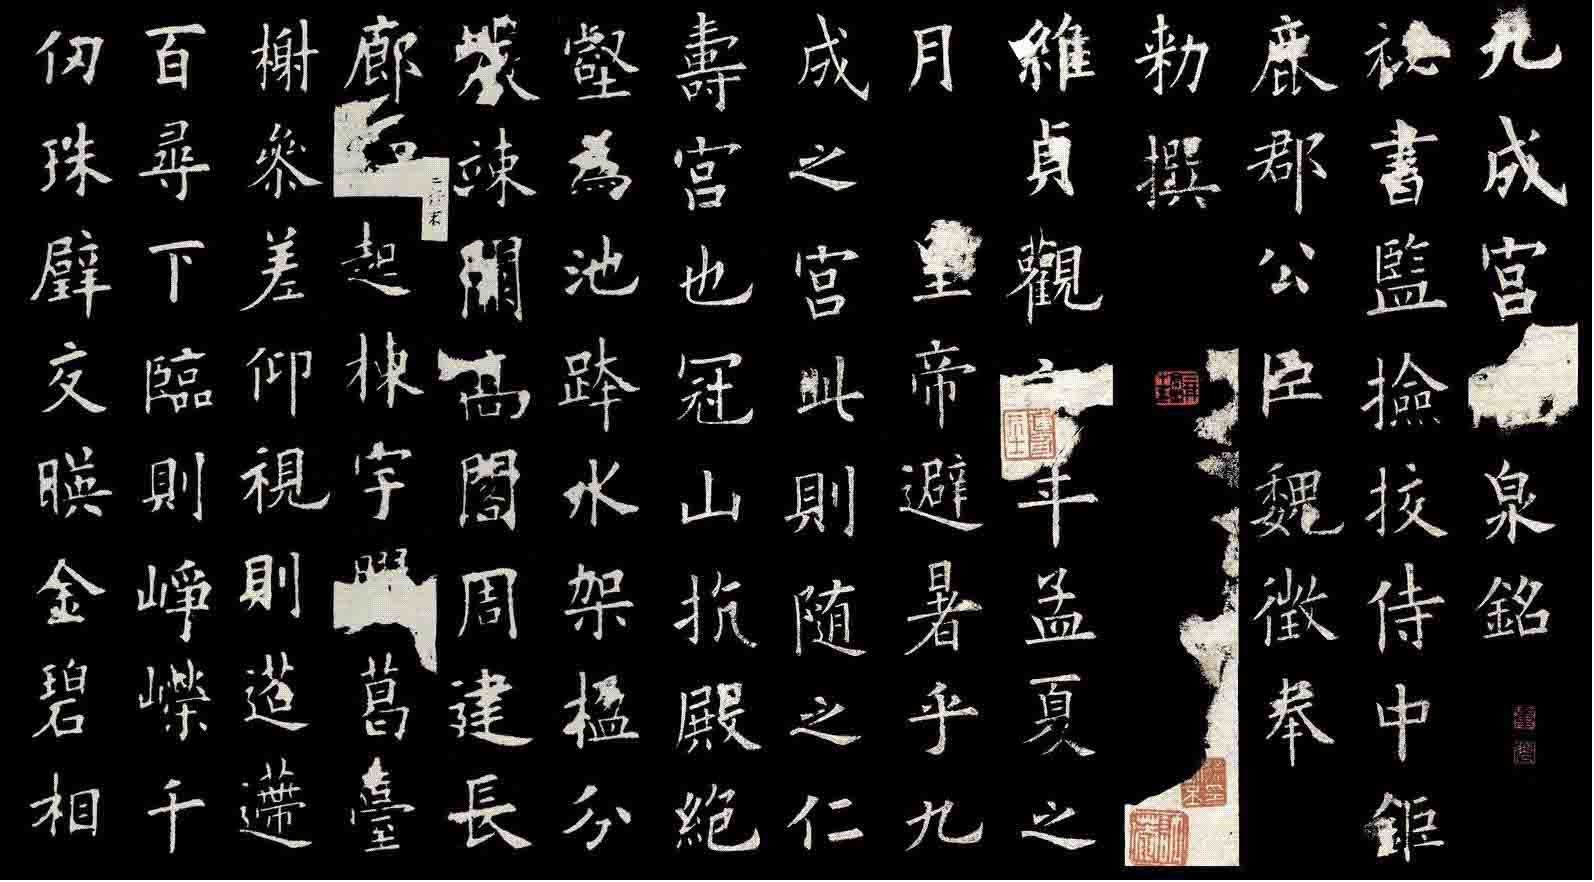 九成宮泉銘
祕書監撿挍侍中鉅
鹿郡公臣魏徵奉
勑撰
維貞觀六年孟夏之
月皇帝避暑乎九
成之宮此則随之仁
壽宮也冠山抗殿絕
壑為池跨水架楹分
巖竦闕高閣周建長
廊起棟宇葛臺
榭參差仰視則迢遰
百尋下臨則崢嶸千
仞珠璧交暎金碧相